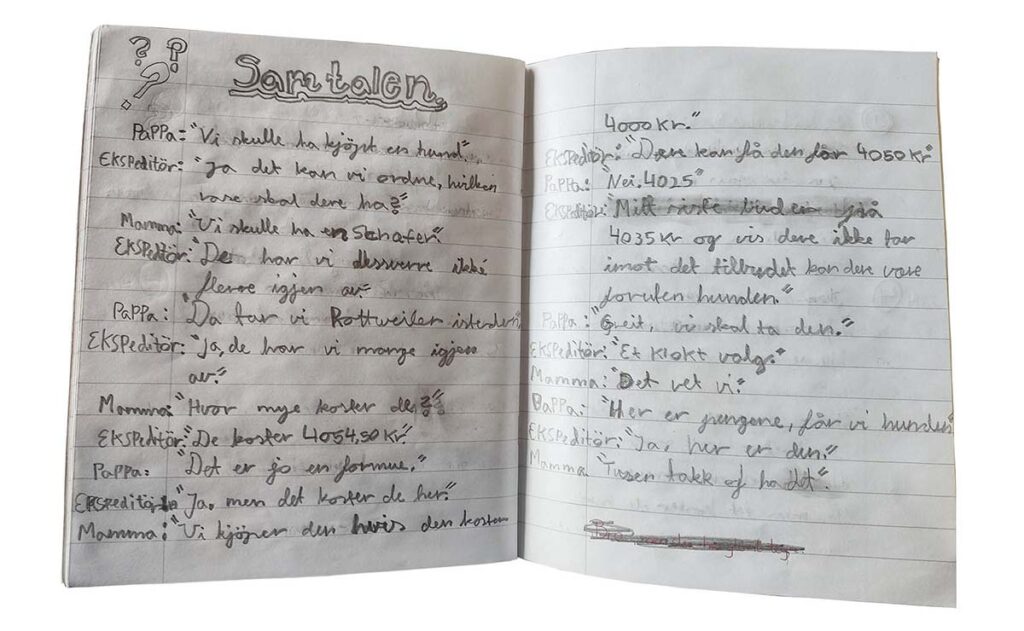 ? ? ?
Samtalen.
PaPPa: "Vi skulle ha kjöpt en hund."
EKSPeditör: "Ja det kan vi ordne, hvilken
rase skal dere ha?"
Mamma: "Vi skulle ha en Schäfer."
EKSPeditör: "De har vi dessverre ikke
flere igjen av."
PaPPa: "Da tar vi Rottweiler isteden."
EKSPeditör: "Ja, de har vi mange igjen
av."
Mamma: "Hvor mye koster de?"
EKSPeditör: "De koster 4054,50 Kr."
PaPPa: "Det er jo en formue."
EKSPeditör: "Ja, men det koster de her."
Mamma: "Vi kjöper den hvis den koster
4000 Kr."
EKSPeditör: "Dere kan få den for 4050 Kr"
PaPPa: "Nei. 4025"
EKSPeditör: "Mitt siste bud er på
4035 Kr og vis dere ikke tar
imot det tilbudet kan dere være
foruten hunden."
PaPPa: "Greit, vi skal ta den."
EKSPeditör: "Et klokt valg."
Mamma: "Det vet vi."
PaPPa: "Her er pengene, får vi hunden"
EKSPeditör: "Ja, her er den."
Mamma "Tusen takk og ha det".